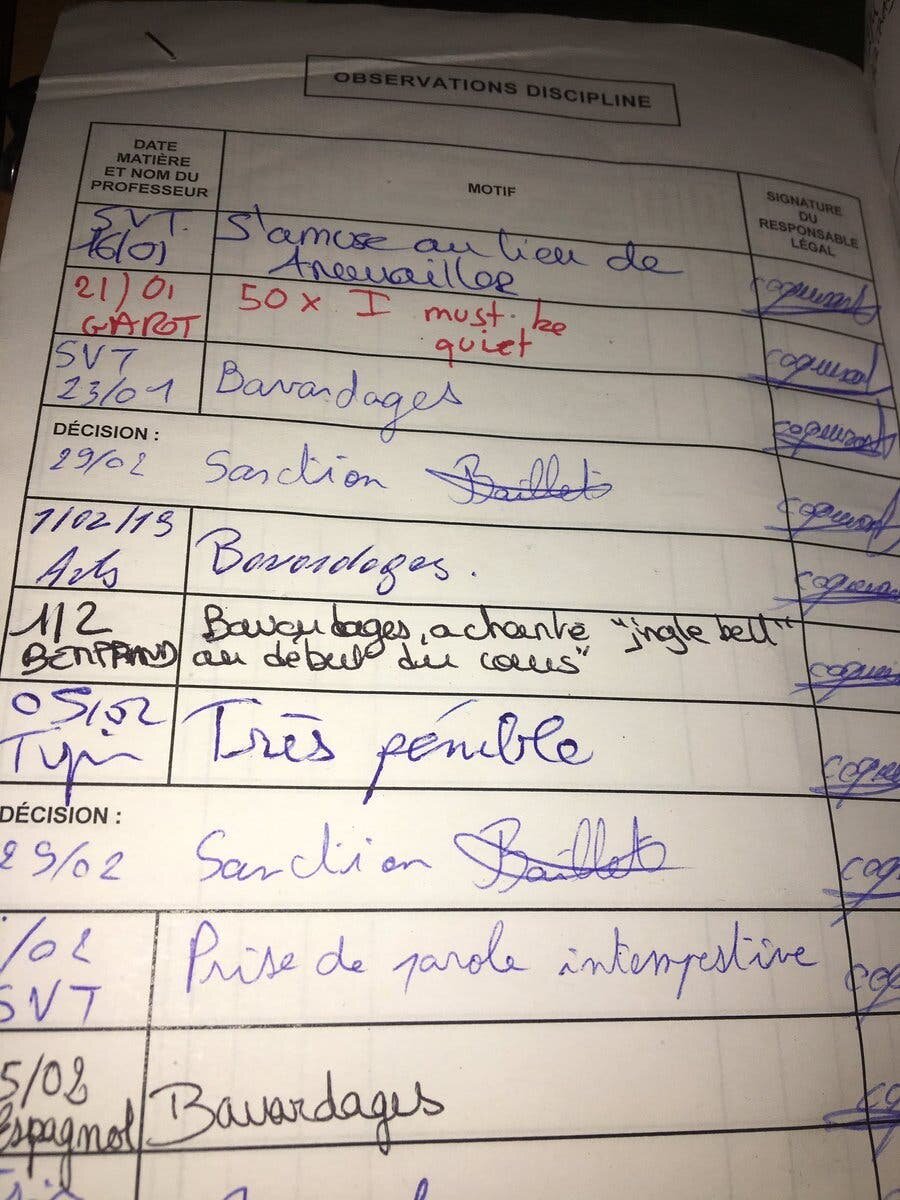 OBSERVATIONS DISCIPLINE
DATE
MATIÈRE
ET NOM DU
PROFESSEUR
MOTIF
SIGNATURE
DU
RESPONSABLE
LÉGAL
SVT.
16/01
S'amuse au lieu de
21/01
GAROT
50 x I must be
quiet
SVT
23/01
Bavardages
DÉCISION :
29/02 Sanction Baillet
1/02/19
Arts
Bavardages.
1/2
BERTRAND
Bavardages, a chanté "jingle bell"
au début du cours"
05/02
Très pénible
DÉCISION :
29/02 Sanction Baillet
/02
SVT
Prise de parole intempestive
5/02
Espagnol
Bavardages